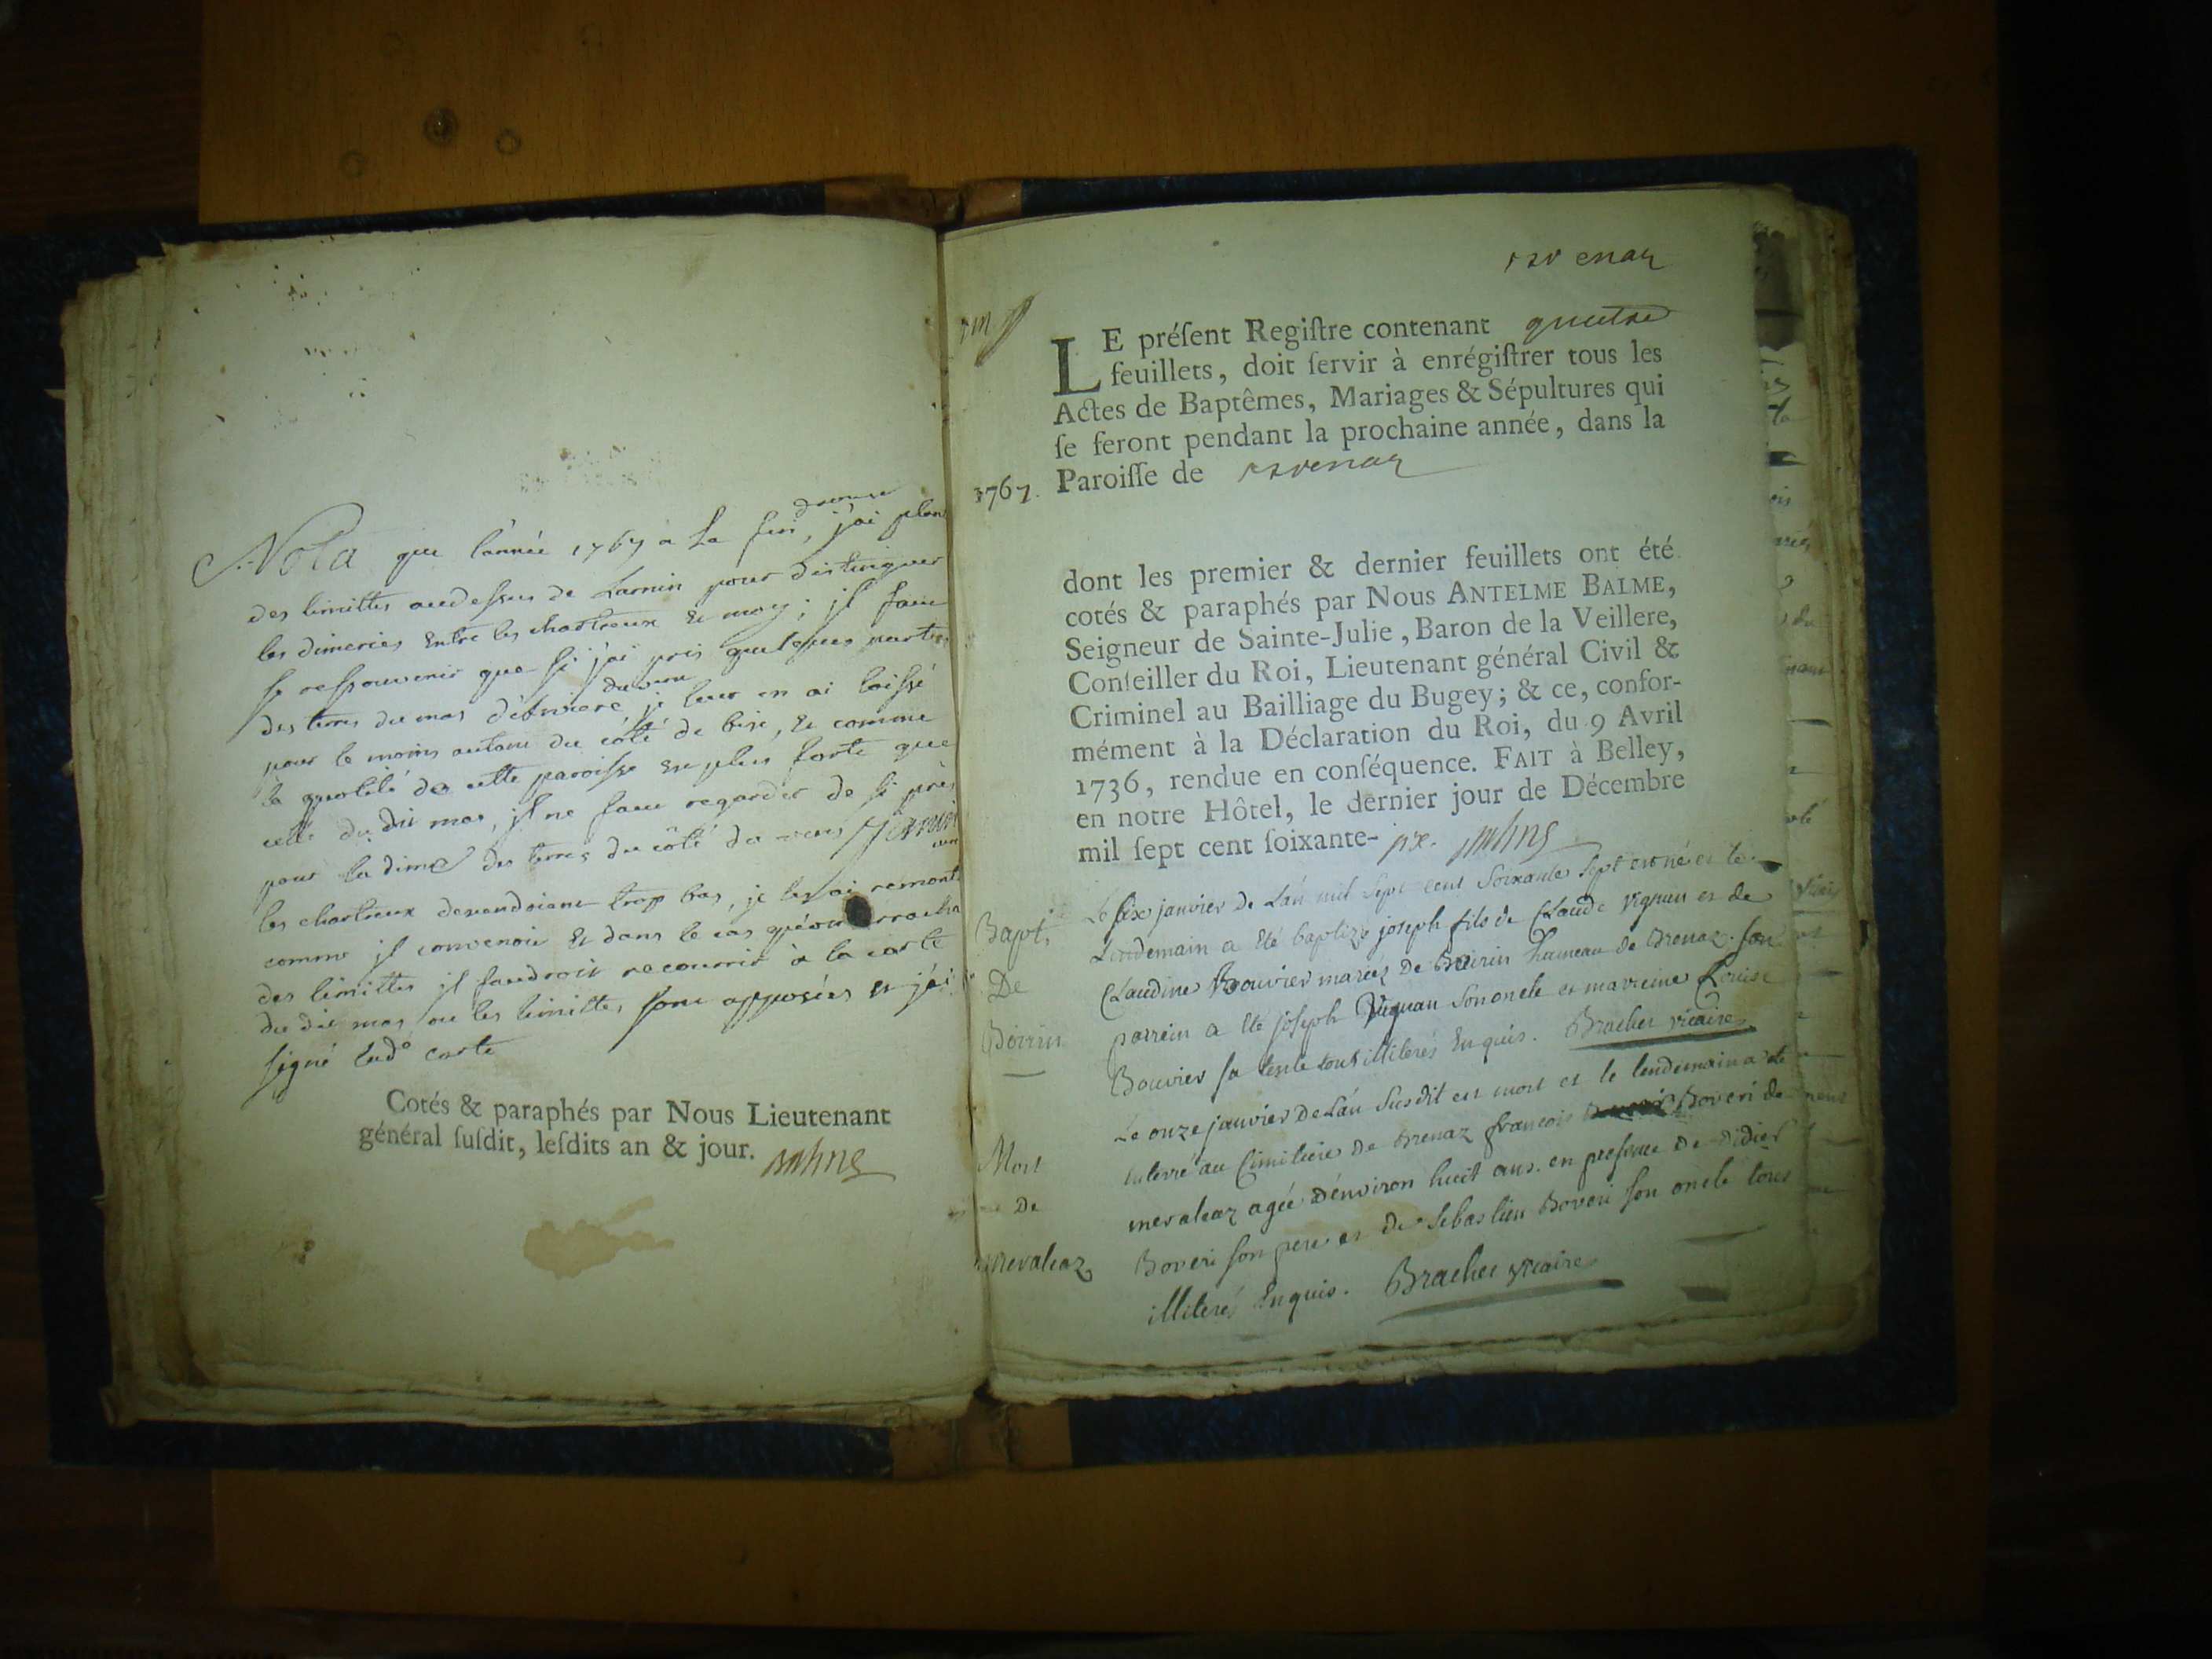 Nota que l'année 1767 à la fin, j'ai
des limittes audessus de Larnin pour distinguer
les dimeries Entre les chartreux Et moy; jl faut
se ressouvenir que si j'ai pris quelques
des terres du mas je leur en ai laissé
pour le moins autant du côté de bise, Et comme
la quotité de cette paroisse est plus forte que
celle du dit mas, jl ne faut regarder de si près
pour la dime des terres du côté du vent
les chartreux trop bas, je les ai remonté
comme jl convenoit Et dans le cas
des limittes jl faudroit recourrir à la carte
du dit mas ou les limittes sont apposées Et j'ai
signé carte
Cotés & paraphés par Nous Lieutenant
général ſuſdit, leſdits an & jour.
LE préſent Regiſtre contenant quatre
feuillets, doit ſervir à enrégiſtrer tous les
Actes de Baptêmes, Mariages & Sépultures qui
ſe feront pendant la prochaine année, dans la
1767. Paroiſſe de
dont les premier & dernier feuillets ont été
cotés & paraphés par Nous ANTELME BALME,
Seigneur de Sainte-Julie, Baron de la Veillere,
Conſeiller du Roi, Lieutenant général Civil &
Criminel au Bailliage du Bugey; & ce, confor-
mément à la Déclaration du Roi, du 9 Avril
1736, rendue en conſéquence. FAIT à Belley,
en notre Hôtel, le dernier jour de Décembre
mil ſept cent ſoixante-
Bapt.
De
Boirin
Le six janvier de L'an mil sept cent soixante sept est né et le
Lendemain a été baptizé joseph fils de Claude et de
Claudine Bouvier mariés de Boirin hameau de Brenaz. son
parrein a été joseph son oncle et mareine Louise
Bouvier sa tente tous illiterés Enquis. Brachet vicaire
Mort
De
Mevaleaz
Le onze janvier de L'an susdit est mort et le lendemain a été
Enterré au Cimitiere de Brenaz francois Boveri de
mevaleaz agée d'environ huit ans. en presence de didier
Boveri son pere et de Sebastien Boveri son oncle tous
illiterés Enquis. Brachet vicaire